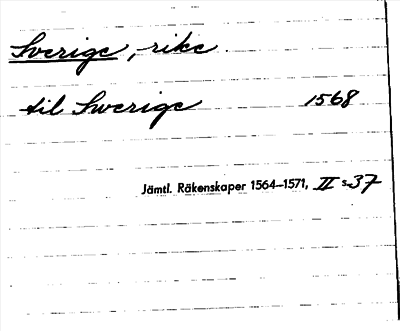 Sverige, rike
til Swerige 1568
Jämtl. Räkenskaper 1564–1571, II s. 37